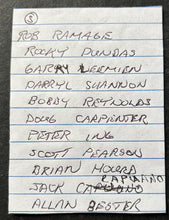 5
ROB RAMAGE
ROCKY DUNDAS
GARY LEEMIEN
DARRYL SHANNON
BOBBY REYNOLDS
DOUG CARPENTER
PETER ING
SCOTT PEARSON
BRIAN HOARD
CAPUANO
JACK
ALLAN BESTER